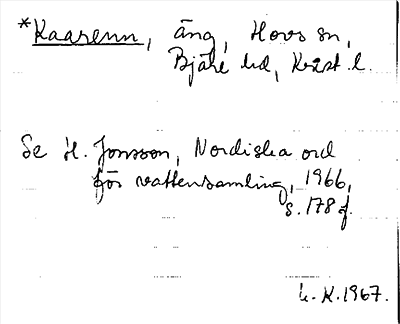 *Kaarenn, äng, Hovs sn,
Bjäre hd, Krist. l.
Se H. Jonsson, Nordiska ord
för vattensamling, 1966,
s. 178 f.
L. K. 1967.